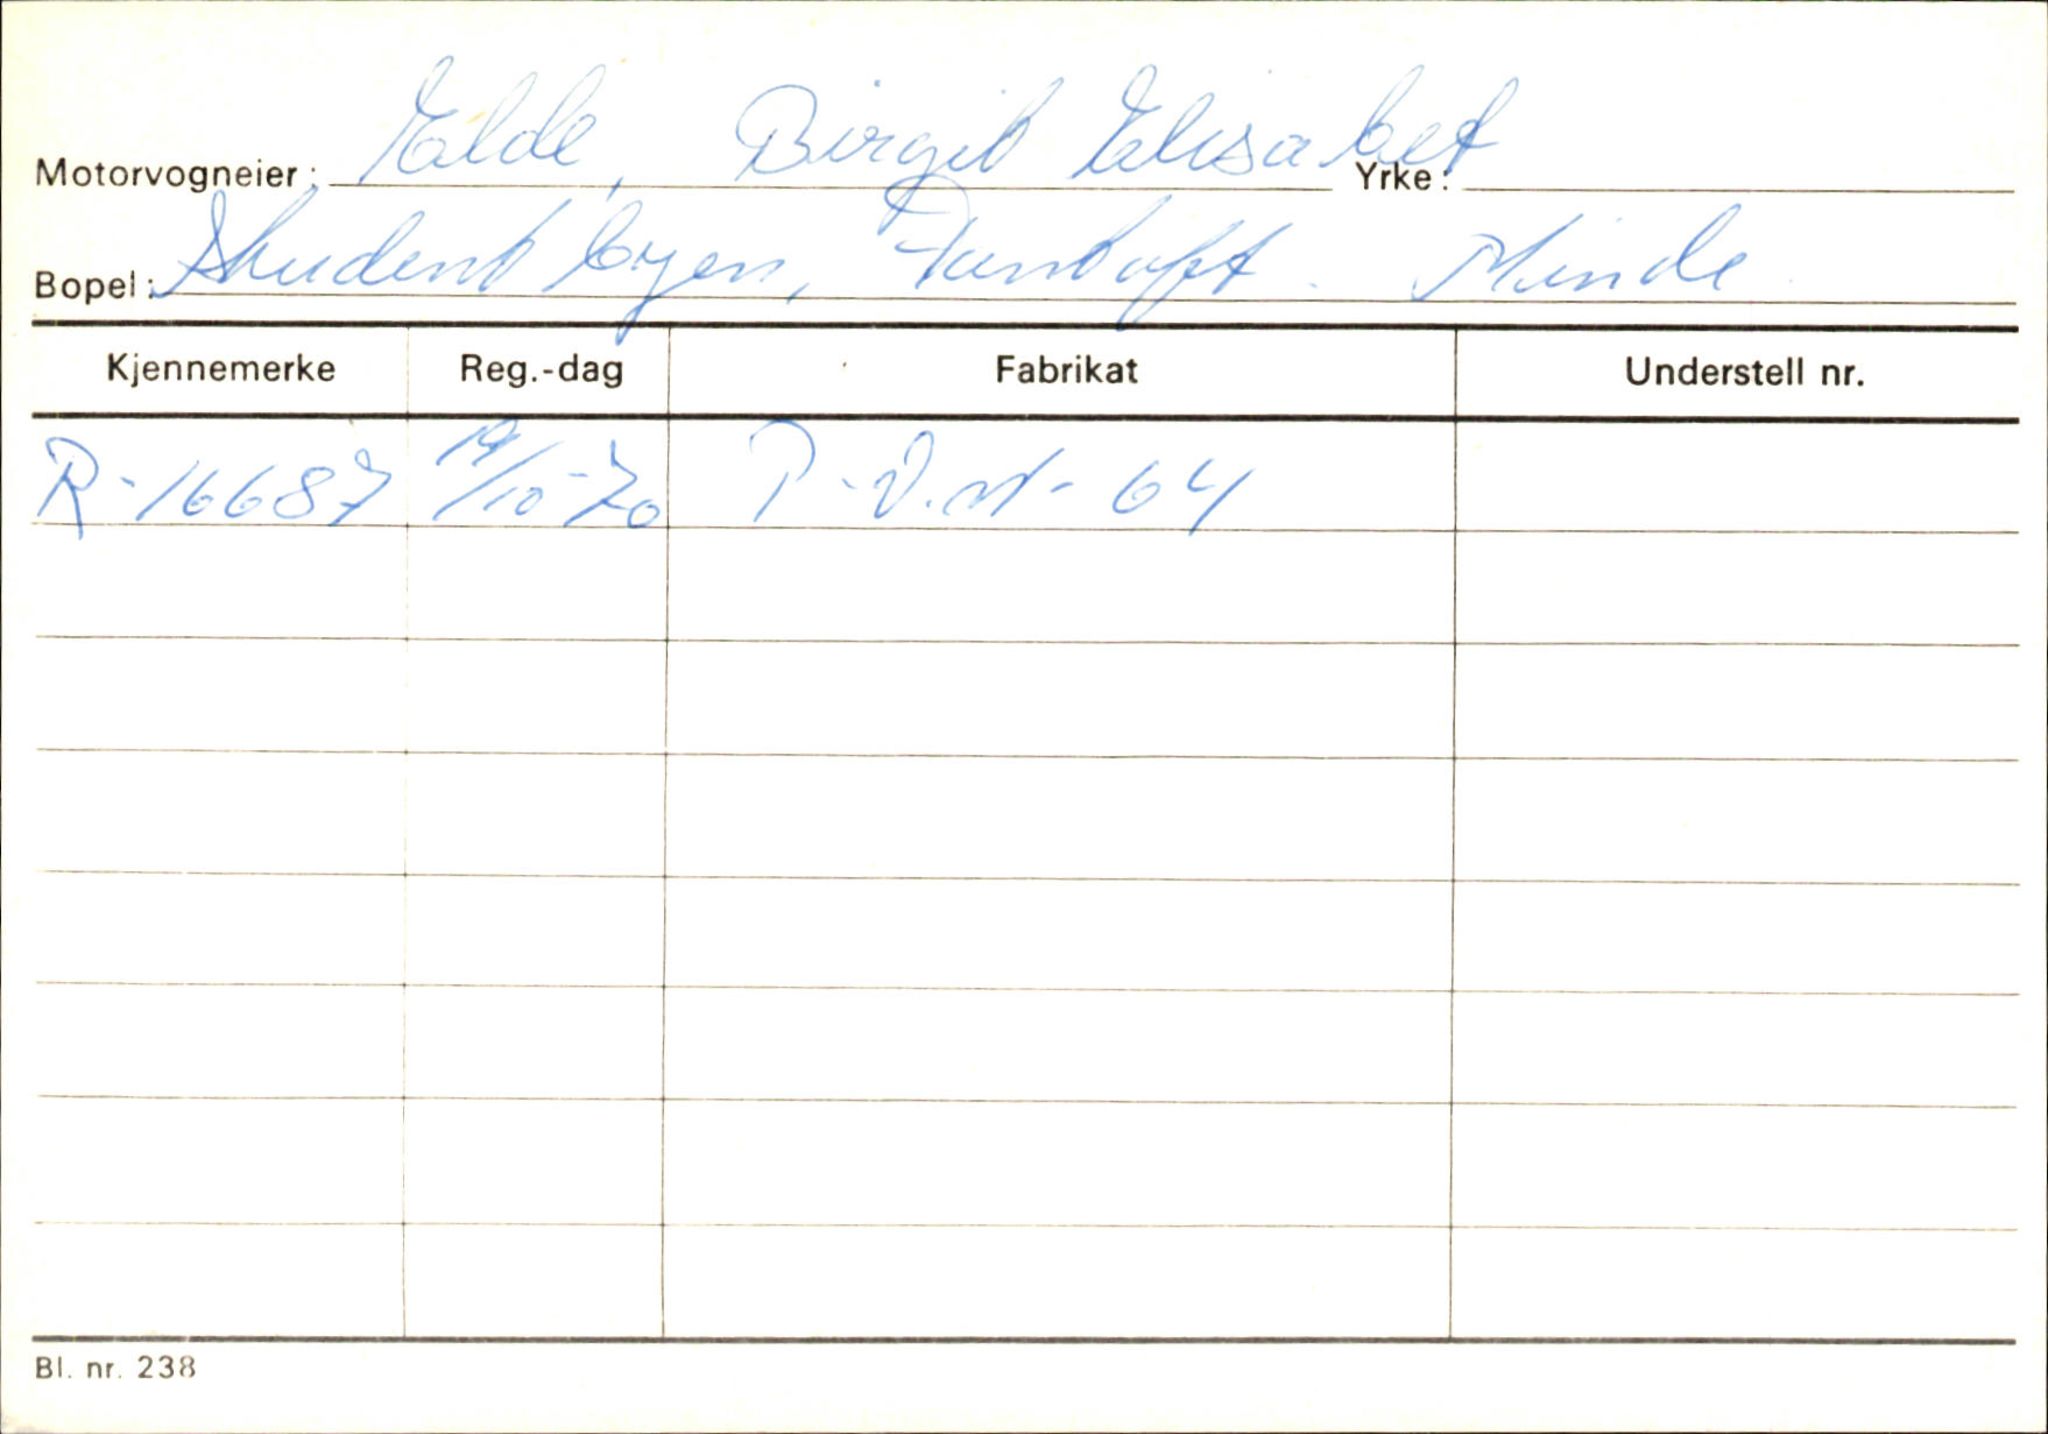 Motorvogneier: Elde, Birgit Elisabet Yrke:
Bopel: Studentbyen, Fantoft. Minde.
Kjennemerke Reg.-dag Fabrikat Understell nr.
R-16687 19/10-70 P-V.st-64
Bl. nr. 238